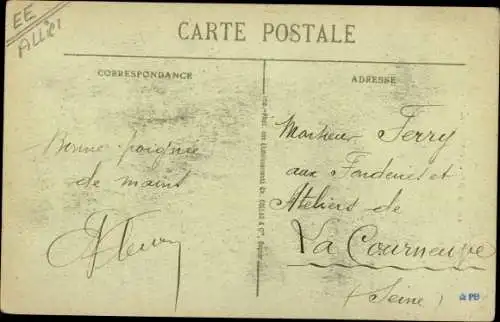 EE
Allier
CARTE POSTALE
CORRESPONDANCE
ADRESSE
Bonne poignée
de mains
Monsieur Ferry
aux Fonderies et
Ateliers de
La Courneuve
(Seine)
PB